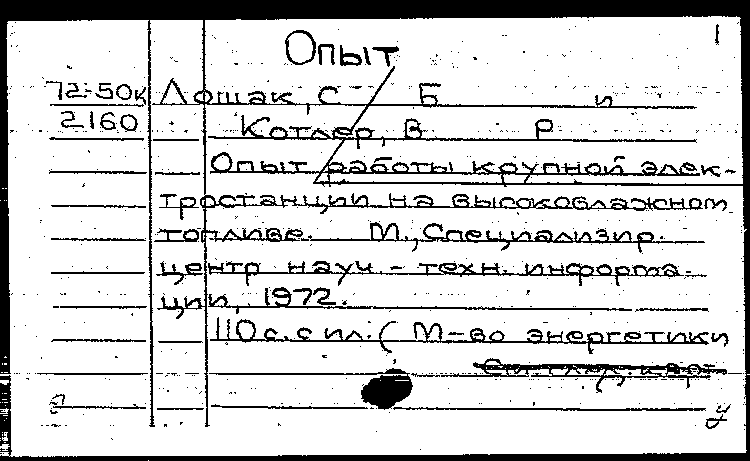 1
Опыт
72-50к Лошак, С Б и
2160 Котлер, В Р
Опыт работы крупной элек-
тростанции на высоковлажном
топливе. М., Специализир.
центр науч.-техн. информа-
ции, 1972.
110 с. с ил. (М-во энергетики